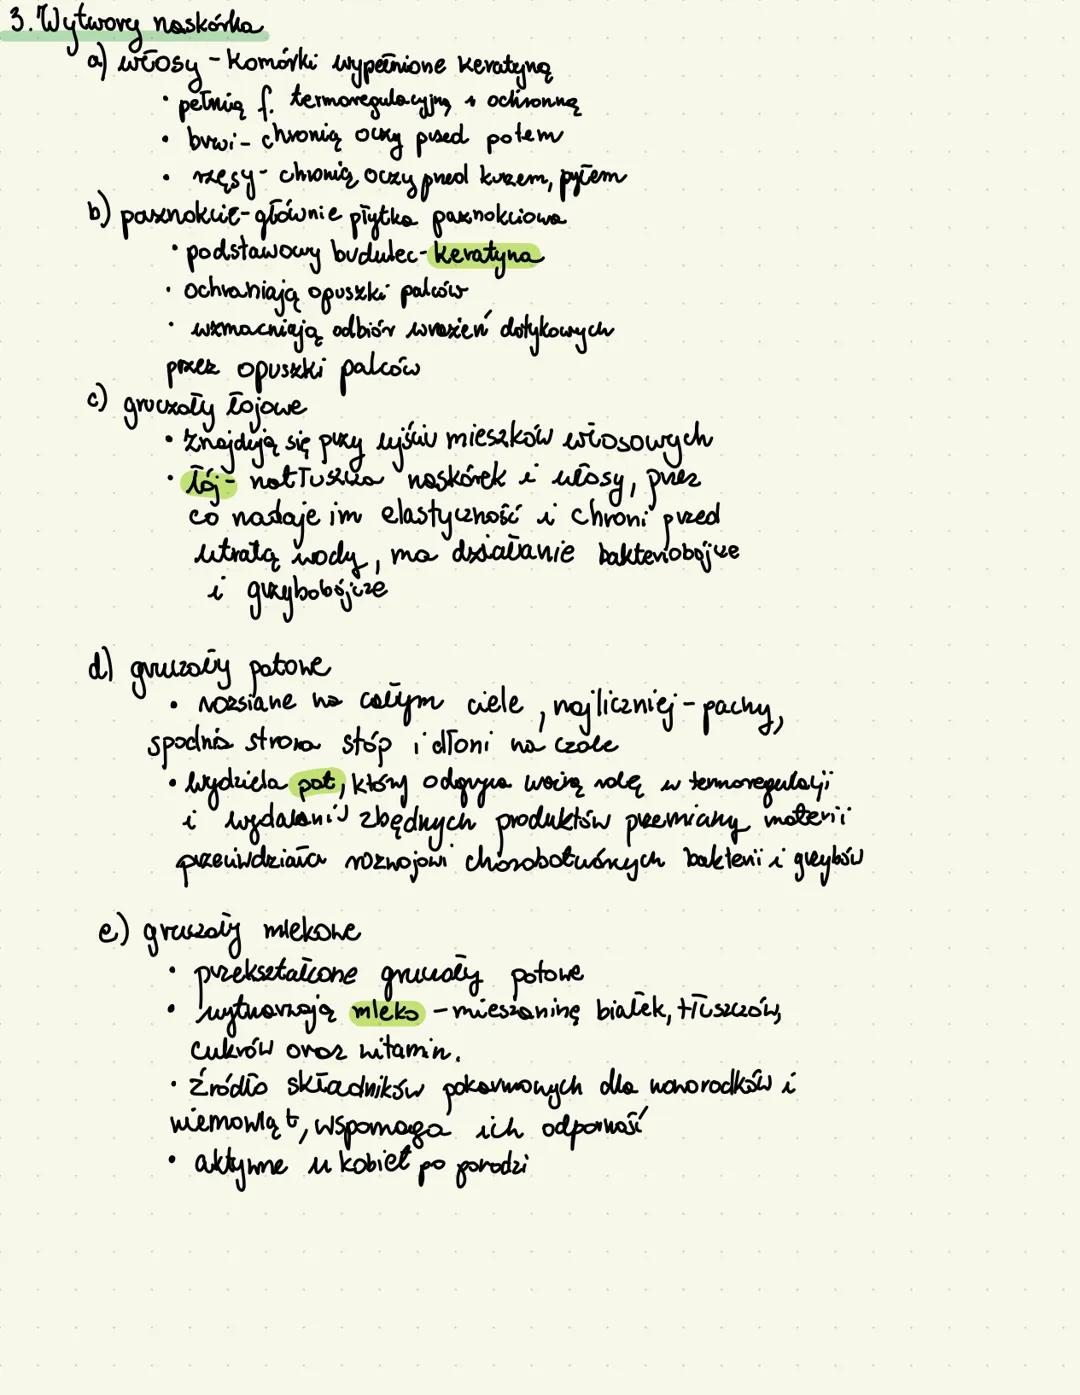 3. Wytwory naskórka
a) włosy - Komórki wypełnione keratyną
• pełnią f. termoregulacyjną i ochronną
• brwi - chronią oczy przed potem
• rzęsy - chronią oczy przed kurzem, pyłem
b) paznokcie - głównie płytka paznokciowa
• podstawowy budulec - keratyna
• ochraniają opuszki palców
• wzmacniają odbiór wrażeń dotykowych
przez opuszki palców
c) gruczoły łojowe
• znajdują się przy ujściu mieszków włosowych
• łój - natłuszcza naskórek i włosy, przez
co nadaje im elastyczność i chroni przed
utratą wody, ma działanie bakteriobójcze
i grzybobójcze
d) gruczoły potowe
• rozsiane na całym ciele, najliczniej - pachy,
spodnia strona stóp i dłoni na czole
• wydziela pot, który odgrywa ważną rolę w termoregulacji
i wydalaniu zbędnych produktów przemiany materii
przeciwdziała rozwojowi chorobotwórczych bakterii i grzybów
e) gruczoły mlekowe
• przekształcone gruczoły potowe
• wytwarzają mleko - mieszaninę białek, tłuszczów,
cukrów oraz witamin.
• źródło składników pokarmowych dla noworodków i
niemowląt, wspomaga ich odporność
• aktywne u kobiet po porodzi